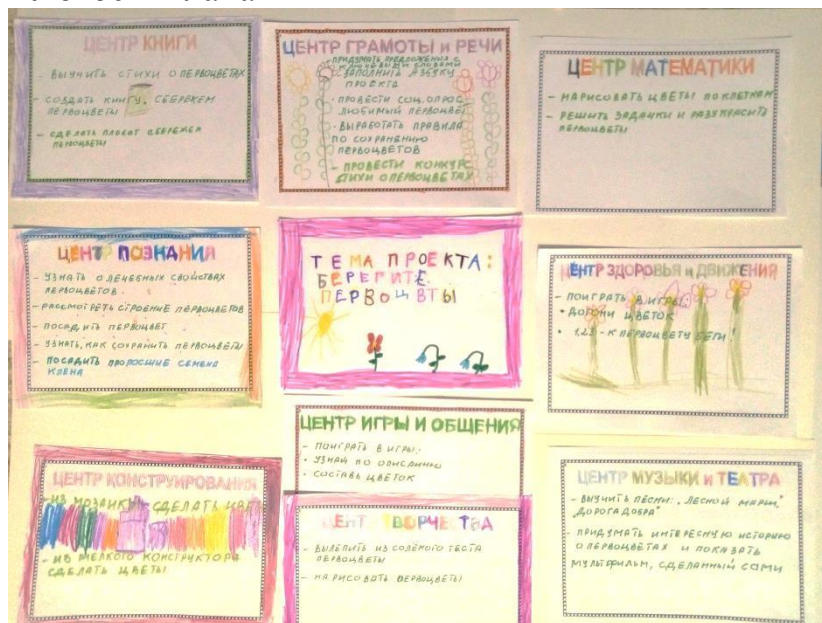 ЦЕНТР КНИГИ
- ВЫУЧИТЬ СТИХИ О ПЕРВОЦВЕТАХ
- СОЗДАТЬ КНИГУ, СБЕРЕЖЕМ
ПЕРВОЦВЕТЫ
- СДЕЛАТЬ ПЛАКАТ СБЕРЕЖЕМ
ПЕРВОЦВЕТЫ
ЦЕНТР ГРАМОТЫ и РЕЧИ
- ПРИДУМАТЬ ПРЕДЛОЖЕНИЯ С
КЛЮЧЕВЫМИ СЛОВАМИ
- ЗАПОЛНИТЬ АЗБУКУ
ПРОЕКТА
- ПРОВЕСТИ СОЦ. ОПРОС
ЛЮБИМЫЙ ПЕРВОЦВЕТ
- ВЫРАБОТАТЬ ПРАВИЛА
ПО СОХРАНЕНИЮ
ПЕРВОЦВЕТОВ
- ПРОВЕСТИ КОНКУРС
СТИХИ О ПЕРВОЦВЕТАХ
ЦЕНТР МАТЕМАТИКИ
- НАРИСОВАТЬ ЦВЕТЫ ПО КЛЕТКАМ
- РЕШИТЬ ЗАДАЧКИ И РАЗУКРАСИТЬ
ПЕРВОЦВЕТЫ
ЦЕНТР ПОЗНАНИЯ
- УЗНАТЬ О ЛЕЧЕБНЫХ СВОЙСТВАХ
ПЕРВОЦВЕТОВ
- РАССМОТРЕТЬ СТРОЕНИЕ ПЕРВОЦВЕТОВ
- ПОСАДИТЬ ПЕРВОЦВЕТ
- УЗНАТЬ, КАК СОХРАНИТЬ ПЕРВОЦВЕТЫ
- ПОСАДИТЬ ПРОРОСШИЕ СЕМЕНА
КЛЕНА
ТЕМА ПРОЕКТА:
БЕРЕГИТЕ
ПЕРВОЦВТЫ
ЦЕНТР ЗДОРОВЬЯ и ДВИЖЕНИЯ
- ПОИГРАТЬ В ИГРЫ:
• ДОГОНИ ЦВЕТОК
• 1,2,3 - К ПЕРВОЦВЕТУ БЕГИ!
ЦЕНТР КОНСТРУИРОВАНИЯ
- ИЗ МОЗАИКИ СДЕЛАТЬ
- ИЗ МЕЛКОГО КОНСТРУКТОРА
СДЕЛАТЬ ЦВЕТЫ
ЦЕНТР ИГРЫ И ОБЩЕНИЯ
- ПОИГРАТЬ В ИГРЫ:
• УЗНАЙ ПО ОПИСАНИЮ
• СОСТАВЬ ЦВЕТОК
ЦЕНТР ТВОРЧЕСТВА
- ВЫЛЕПИТЬ ИЗ СОЛЁНОГО ТЕСТА
ПЕРВОЦВЕТЫ
- НАРИСОВАТЬ ПЕРВОЦВЕТЫ
ЦЕНТР МУЗЫКИ и ТЕАТРА
- ВЫУЧИТЬ ПЕСНИ: „ЛЕСНОЙ МАРШ",
"ДОРОГА ДОБРА"
- ПРИДУМАТЬ ИНТЕРЕСНУЮ ИСТОРИЮ
О ПЕРВОЦВЕТАХ И ПОКАЗАТЬ
МУЛЬТФИЛЬМ, СДЕЛАННЫЙ САМИ